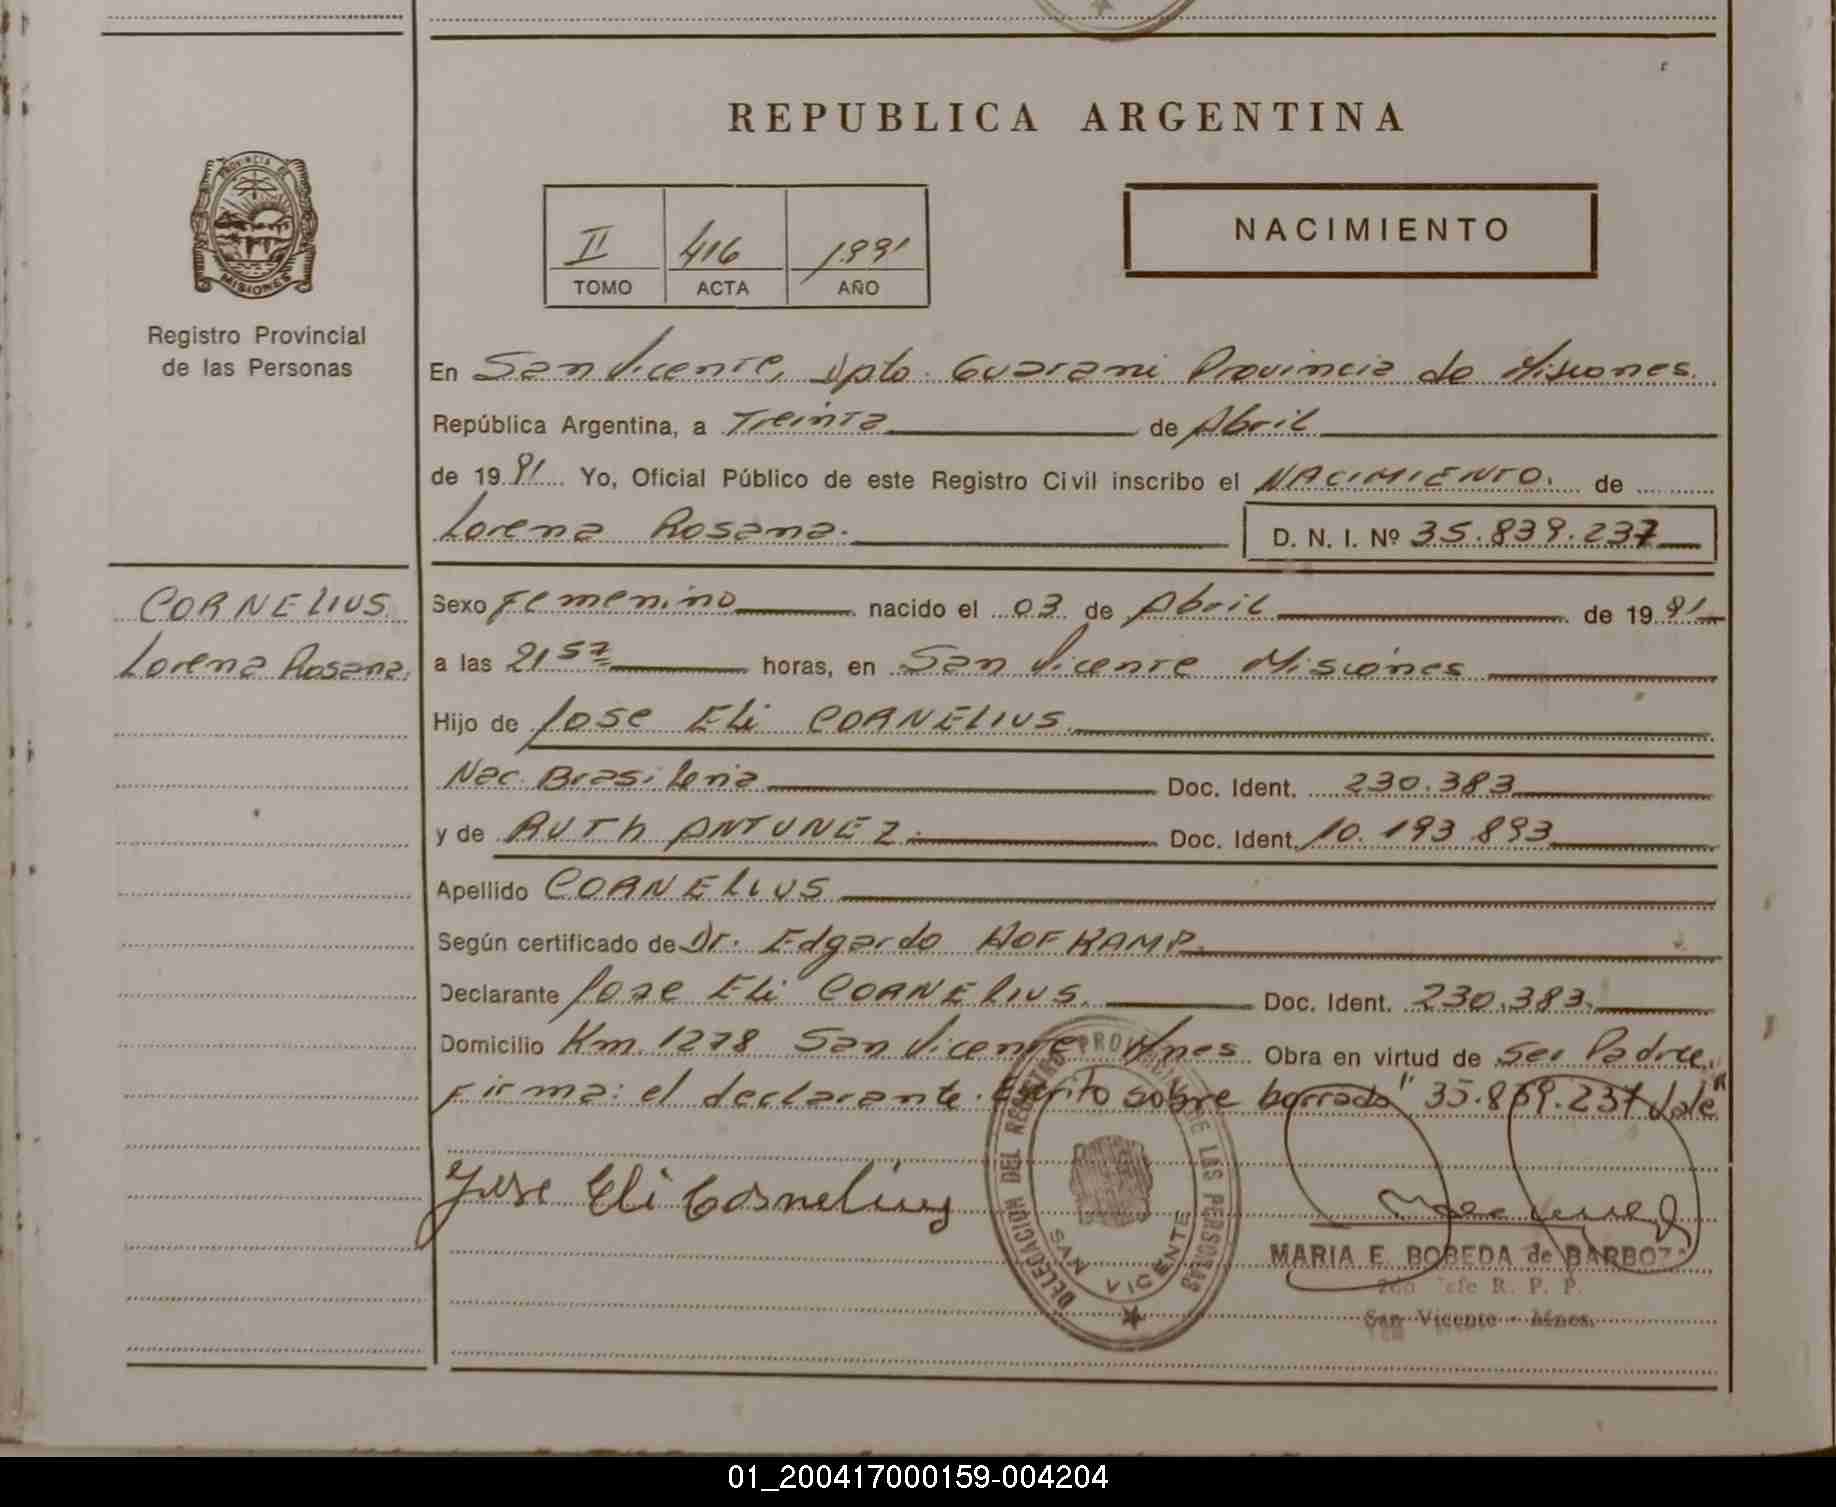 REPUBLICA ARGENTINA
PROVINCIA DE
MISIONES
Registro Provincial
de las Personas
II 416 1991
TOMO ACTA AÑO
NACIMIENTO
En San Vicente, Dpto. Guarani Provincia de Misiones.
República Argentina, a Treinta de Abril
de 19 91 Yo, Oficial Público de este Registro Civil inscribo el NACIMIENTO. de
Lorena Rosana. D. N. I. Nº 35.839.237
CORNELIUS
Lorena Rosana.
Sexo Femenino nacido el 03 de Abril de 19 91
a las 21 57 horas, en San Vicente Misiones
Hijo de Jose Eli CORNELIUS
Nac. Brasilenia Doc. Ident. 230.383
y de RUTh ANTUNEZ. Doc. Ident. 10.193.893
Apellido CORNELIUS
Según certificado de Dr. Edgardo HOFKAMP.
Declarante Jose Eli CORNELIUS. Doc. Ident. 230.383.
Domicilio Km. 1278 San Vicente Mnes Obra en virtud de Ser Padre.
Firma: el declarante. Escrito sobre borrado "35.839.237 Vale"
Jose Eli Cornelius
DELEGACION DEL REGISTRO PROVINCIAL DE LAS PERSONAS
SAN VICENTE
MARIA E. BOBEDA de BARBOZA
R. P. P.
San Vicente - Mnes.
01_200417000159-004204